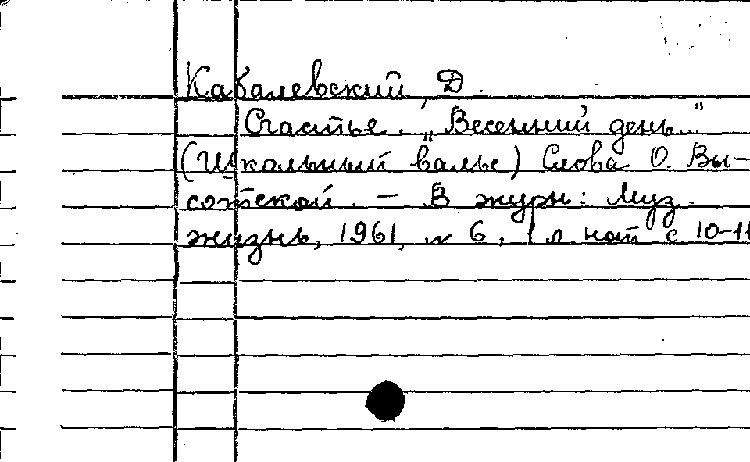 Кабалевский, Д.
Счастье. „Весенний день..."
(Школьный вальс) Слова О. Вы-
сотской. — В журн: Муз.
жизнь, 1961, № 6, 1 л. нот с 10-11